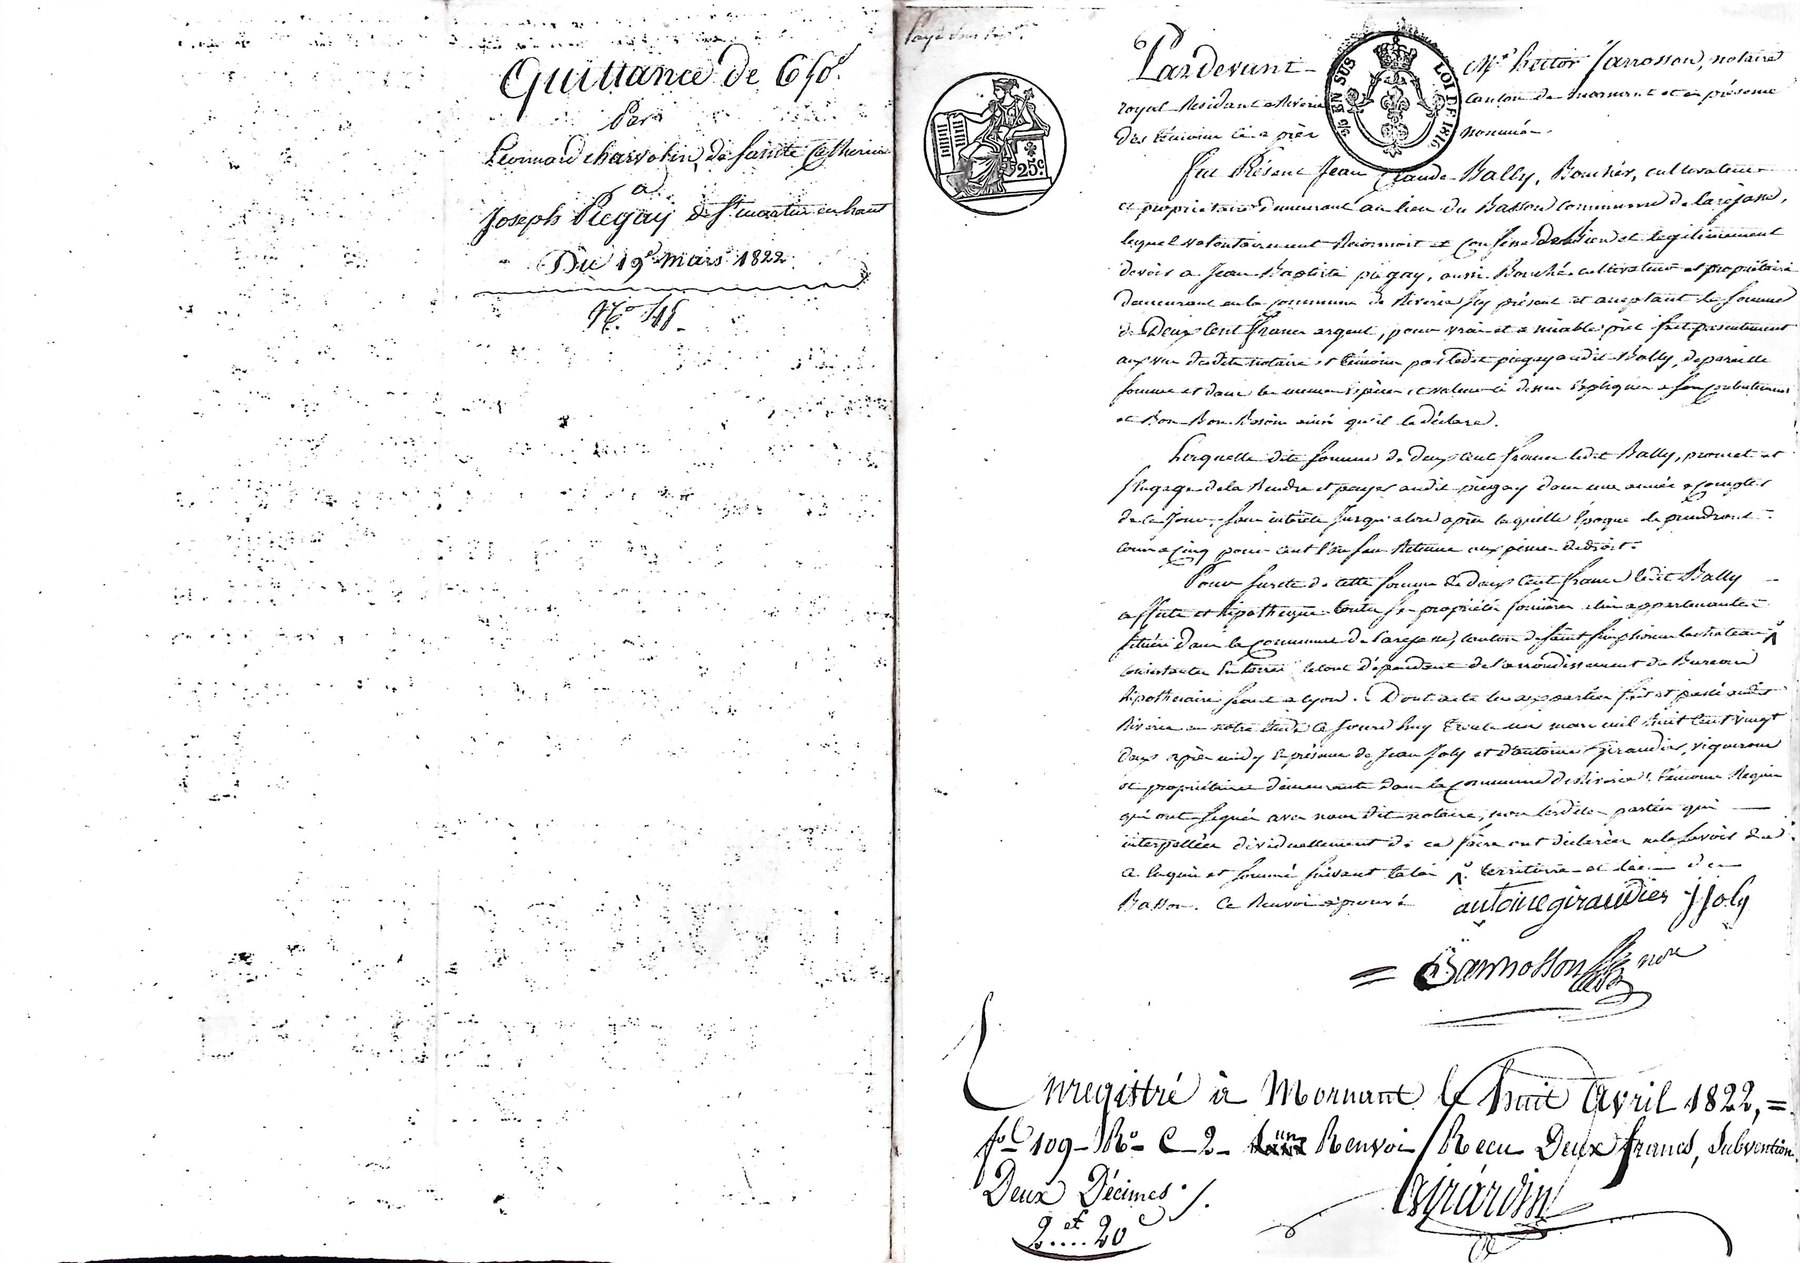 Quittance de 650f.
Par
Leonard charvolin, de sainte Catherine
a
Joseph Piegay de St. martin en haut
Du 19e mars 1822
No.
Payé
25c.
EN SUS LOI DE 1816
Pardevant Me. hector Jarrosson, notaire
royal Résidant a Riverie canton de mornant et en présence
des témoins ci après nommés.
fut Présent Jean Claude Bally, Boucher, cultivateur
et propriétaire demeurant au lieu du Basson Commune de larajasse,
lequel volontairement Reconnoit et Confesse Bien et legitimement
devoir a Jean Baptiste piegay, aussi Boucher cultivateur et propriétaire
demeurant en la commune de Riverie Icy présent et acceptant la somme
de Deux Cent francs argent, pour vrai et amiable prêt fait presentement
aux vue desdits notaire et témoins par ledit piegay audit Bally, de pareille
somme et dans les mêmes espèces et valeur ci dessus expliquées a son contentement
et Bon Besoin ainsi qu'il le déclare.
Laquelle dite somme de deux Cent francs ledit Bally, promet et
s'engage de la Rendre et payer audit piegay dans une année a compter
de ce jour, sans intérêts jusqu'alors après laquelle époque ils prendront
cours a Cinq pour cent l'an sans Retenue aux peines de droit.
Pour sureté de cette somme de deux cent francs ledit Bally
affecte et hipothèque toutes ses propriétés foncières a lui appartenantes
situées Dans la Commune de Larajasse, canton de saint simphorien le chateau
consistantes En terres le tout dépendant de l'arrondissement du Bureau
hipothécaire séant a lyon. Dont acte lu aux parties fait et passé audit
Riverie en notre étude Ce jourd'huy trente un mars mil huit Cent vingt
deux après midy En présence de Jean Joly et d'antoine Giraudier, vignerons
et propriétaires demeurants dans la Commune de Riverie, témoins Requis
qui ont signés avec nous dit notaire, non lesdites parties qui
interpellées individuellement de ce faire ont déclarées ne le savoir de ce
Enquis et sommés suivant la loi territoire et lieu du
Basson. Ce Renvoi approuvé
antoine giraudier J Joly
Jarrosson nre
Enregistré à Mornant le huit Avril 1822,=
fol 109 - Ro - C - 2 - un Renvoi / Recu Deux francs, subvention
Deux Décimes ./.
2f....20c
Girardin